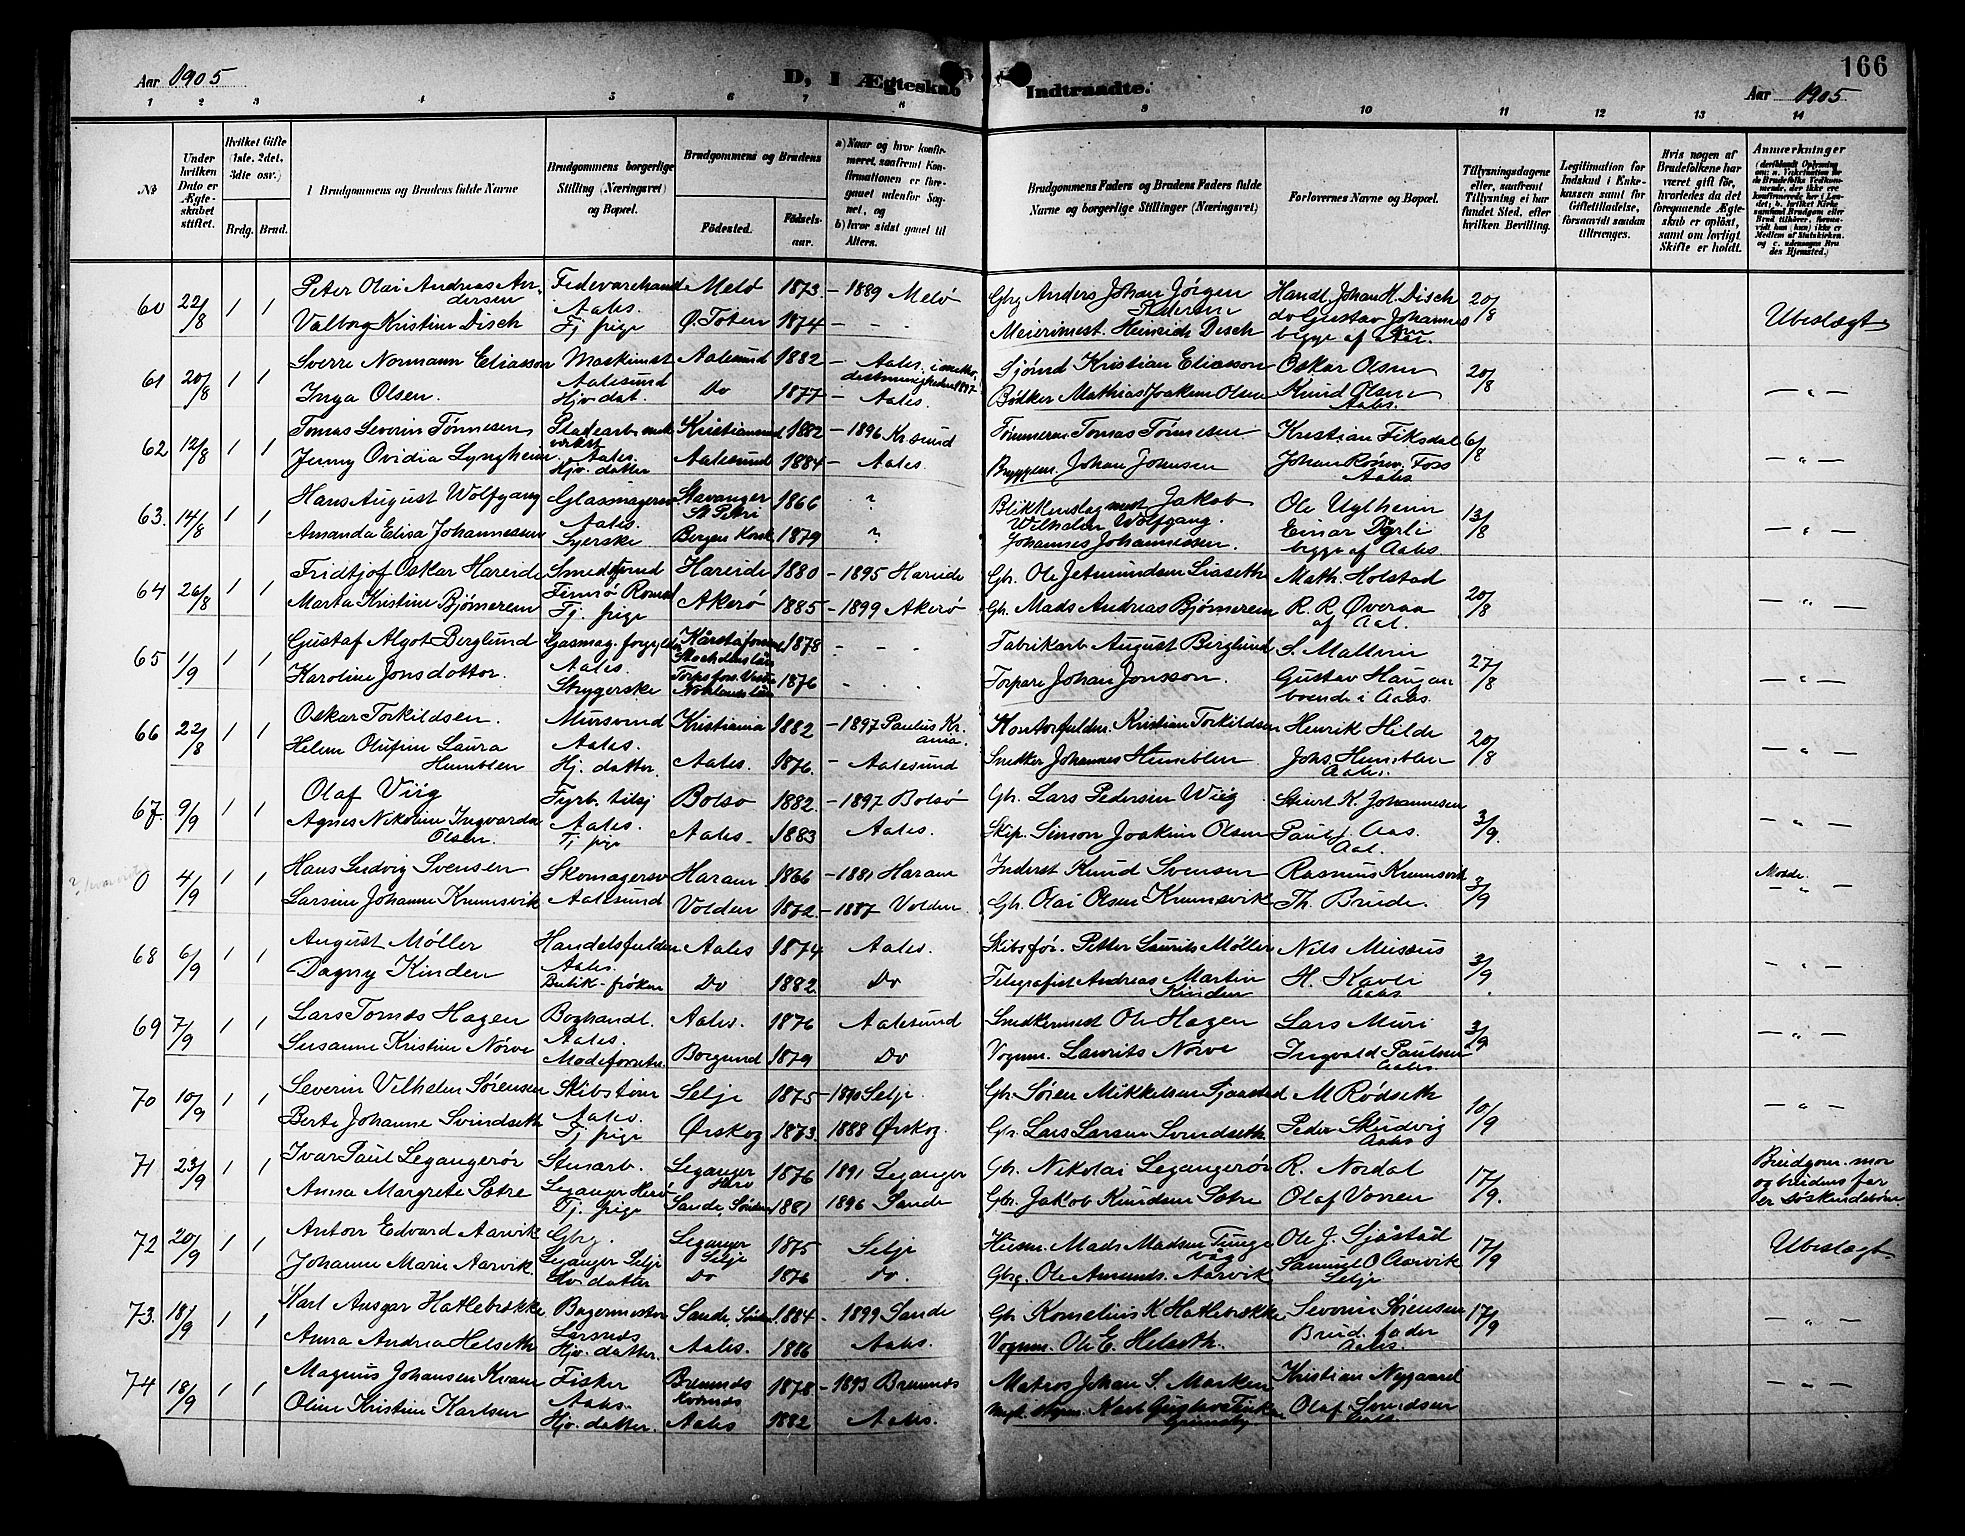 166
Aar 1905
D, I Ægteskab Indtraadte.
Aar 1905
1 2 3 4 5 6 7 8 9 10 11 12 13 14
No
Under hvilken Dato er Ægteskabet stiftet.
Hvilket Gifte (1ste, 2det, 3die osv.)
Brdg. Brud.
Brudgommens og Brudens fulde Navne
Brudgommens borgerlige Stilling (Næringsvei) og Bopæl.
Brudgommens og Brudens
Fødested. Fødselsaar.
a) Naar og hvor konfirmeret, saafremt Konfirmationen er foregaaet udenfor Sognet, og
b) hvor sidst gaaet til Alters.
Brudgommens Faders og Brudens Faders fulde Navne og borgerlige Stillinger (Næringsvei)
Forlovernes Navne og Bopæl.
Tillysningsdagene eller, saafremt Tillysning ei har fundet Sted, efter hvilken Bevilling.
Legitimation for Indskud i Enkekassen samt for Giftetilladelse, forsaavidt saadan tiltrænges.
Hvis nogen af Brudefolkene har været gift før, hvorledes da det foregaaende Ægteskab er opløst, samt om lovligt Skifte er holdt.
Anmærkninger
60 22/8 1 1 Peter Olai Andreas Andersen Aales. Melø 1873 - 1889 Melø Gbrg Anders Johan Jørgen Pedersen Handl. Johan H. Disch 20/8 Ubeslægt
Valborg Kristine Disch Tj. pige Ø. Toten 1874 - - - Meierimest. Heinrich Disch do Gustav Johannes begge af Aal.
61 20/8 1 1 Sverre Normann Eliasson Maskinist Aalesund Aalesund 1882 - Aales. Sjømd Kristian Eliasson Oskar Olsen 20/8 - " -
Inga Olsen. Hjv. dat. Do 1877 - Aales. Bødker Mathias Joakim Olsen Knud Olsen Aales.
62 12/8 1 1 Tomas Severin Tønnesen Aales. Kristiansund 1882 - 1896 Kr.sund Tømmerm. Tomas Tønnesen Kristian Fiksdal 6/8 - " -
Jenny Ovidia Lyngheim Hjv. datter Aalesund 1884 - Aales. Bryggem. Johan Johnsen Johan Aales
63. 14/8 1 1 Hans August Wolfgang Glasmagersv Aales. Stavanger St Petri 1866 ? Jakob Wilhelm Wolfgang. Ole Uglheim 13/8 - " -
Amanda Elisa Johannessen Syerske Bergen Korsk. 1879 ? Johannes Johannessen. Einar Dørli begge af Aales.
64 26/8 1 1 Fridtjof Oskar Hareide Hareide 1880 - 1895 Hareide Gbr. Ole Jetmundsen Liaseth Math. Holstad 20/8 - " -
Marta Kristine Bjørnerem Tj. pige Akerø 1885 - 1899 Akerø Gbr. Mads Andreas Bjørnerem R. R. Øveraa af Aal.
65 1/9 1 1 Gustaf Algot Berglund Aales. 1878 - - - Fabrikarb August Berglund 27/8 - " -
Karoline Jonsdotter. Strygerske 1876 - - - Torpare Johan Jonsson. Gustav boende i Aales.
66 22/8 1 1 Oskar Torkildsen. Mursvend Aales. Kristiania 1882 - 1897 Paulus Kr.ania. Kontorfuldm. Kristian Torkildsen Henrik Hilde 20/8 - " -
Helen Olufine Laura Humblen Hj. datter. Aales. 1876. - Aalesund Snedker Johannes Humblen Johs. Humblen Aales.
67. 9/9 1 1 Olaf Viig Fyrb. Aales. Bolsø 1882. - 1897 Bolsø Gbr. Lars Pedersen Wiig K. Johannesen 3/9. - " -
Agnes Nikoline Ingvarda Olsen. Tj. pige Aales. 1883 Aales. Skip. Simon Joakim Olsen Paul Aas. Aal.
0 4/9 1 1 Hans Ludvig Svensen Skomagersv Aalesund Haram 1866 - 1881 Haram Inderst Knud Svensen Rasmus Krumsvik 3/9 Molde. - " -
Larsine Johanne Krumsvik Volden 1872. - 1887 Volden. Gbr. Olai Olsen Krumsvik Th. Brude.
68 6/9 1 1 August Møller Handelsfuldm Aales. Aales 1874 Aales. Skibsfør. Petter Laurits Møller Nils Musæus 3/9. - " -
Dagny Kinden Butik-frøken Do 1882. Do Telegrafist Andreas Martin Kinden H. Kavli Aales
69 7/9 1 1 Lars Tornøs Hagen Boghandl. Aales. Aales. 1876 Aalesund Snedkermest Ole Hagen Lars Muri 3/9 - " -
Susanne Kristine Nørve Modeforretn. Borgund 1879 Do Vognm. Laurits Nørve Ingvald Paulsen Aales
70 10/9 1 1 Severin Vilhelm Sørensen Skibstøm Aales. Selje 1875 - 1890 Selje. Gbr. Søren Mikkelsen M Rødseth 10/9 - " -
Berte Johanne Svindseth Tj pige Ørskog 1873. 1888 Ørskog. Gbr. Lars Larsen Svindseth. Peder Skudvig Aales
71 23/9 1 1 Ivar Paul Legangerør Stuearb. Leganger Herø Leganger Herø 1876 1891 Leganger Gbr. Nikolai Legangerør R. Nordal 17/9. Brudgom. mor og brudens far er søskendebørn
Anna Margrete Sætre Tj. pige Sande, Søndm 1881 1896 Sande Gbr. Jakob Knudsen Sætre Olaf Vorren
72 20/9 1 1 Anton Edvard Aarvik Gbrg. Leganger Selje Leganger Selje 1875 Selje Husm. Mads Madsen Tungevåg Ole J. Sjåstad 17/9 Ubeslægt
Johanne Marie Aarvik. Hv. datter Do 1876 do. Gbrg. Ole Amunds. Aarvik Samuel O Aarvik Selje
73. 18/9 1 1 Karl Ansgar Hatlebrække Bagermester Larsnæs Sande, Søndm 1884 - 1899 Sande Gbr Kornelius K Hatlebrække Severin Sørensen 17/9 - " -
Anna Andrea Helseth Hjv. datter. Aales. 1886 Aales. Vognm. Ole E. Helseth. Brud. fader Aales.
74 18/9 1 1 Magnus Johansen Kvam Fisker Aales. Bremsnes 1878 - 1893 Bremsnes Matros Johan S. Marken Kristian Nygaard - " -
Oline Kristine Karlsen Hjv. datter. Aales 1882 Aales. Karl Gustav Olaf Svendsen Aales